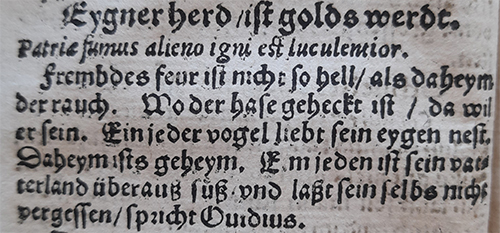 Eygner herd / ist golds werdt.
Patriæ fumus alieno igni est luculentior.
Frembdes feur ist nicht so hell / als daheym
der rauch. Wo der hase geheckt ist / da wil
er sein. Ein jeder vogel liebt sein eygen nest.
Daheym ists geheym. E m jeden ist sein vat-
terland überauß süß vnd laßt sein selbs nicht
vergessen / spricht Ouidius.